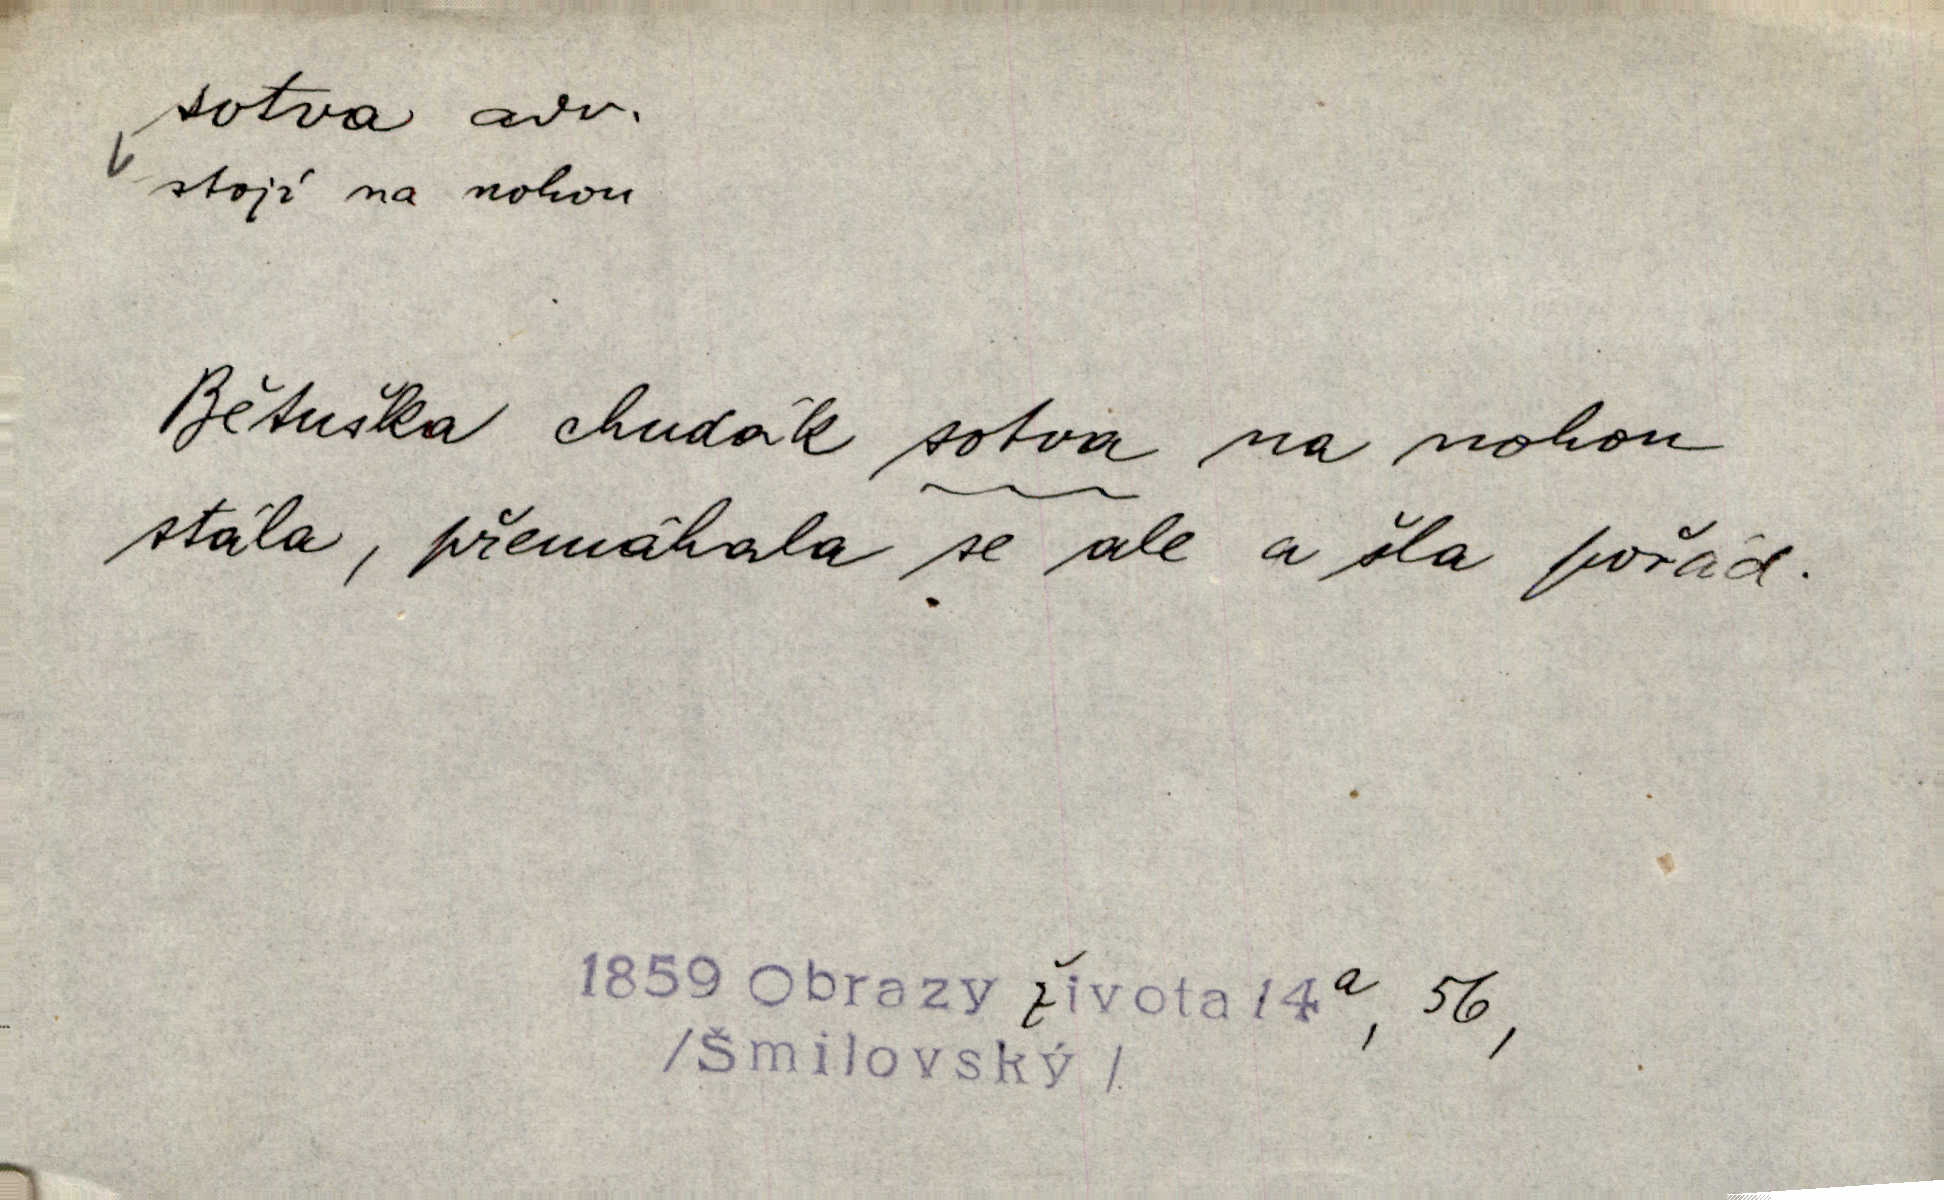 sotva adv.
stojí na nohou
Bětuška chudák sotva na nohou
stála, přemáhala se ale a šla pořád.
1859 Obrazy života 14a, 56,
/Šmilovský/